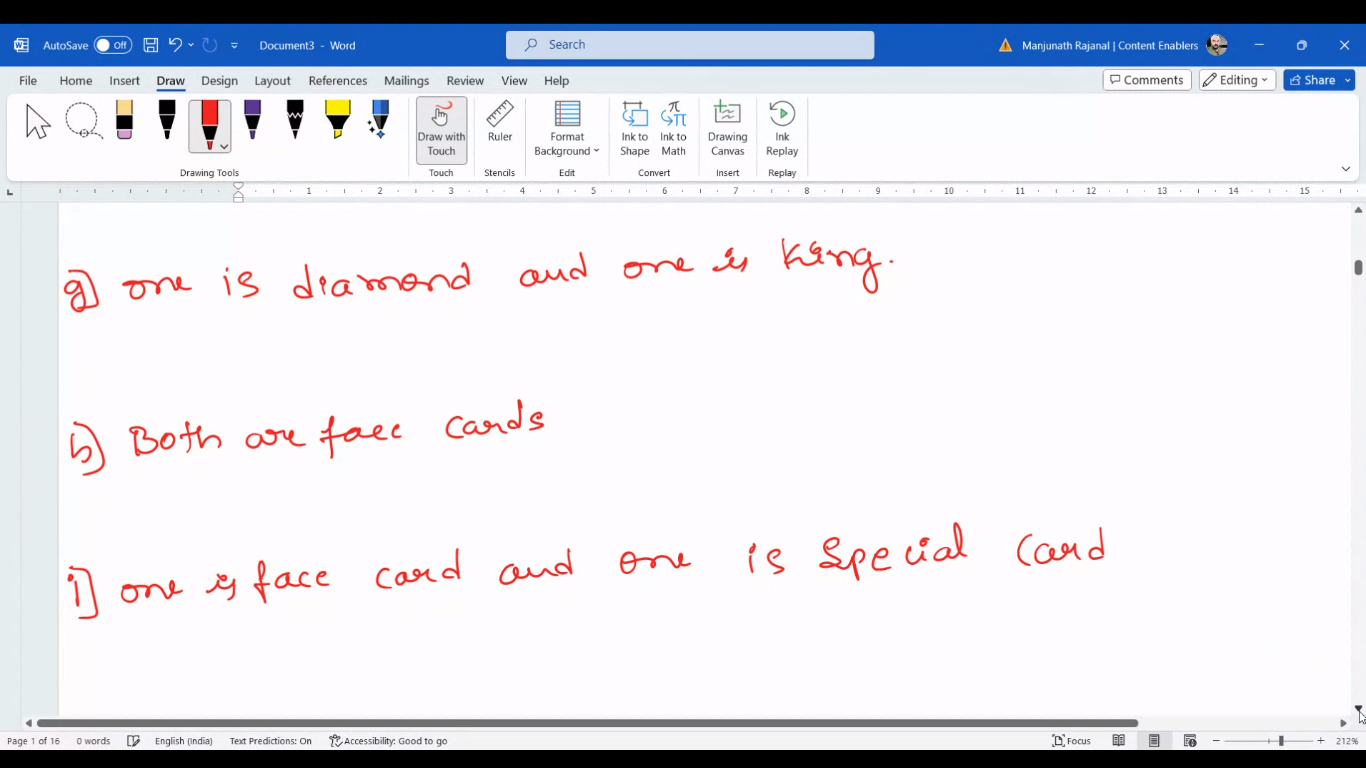 AutoSave Off Document3 - Word Search Manjunath Rajanal | Content Enablers
File Home Insert Draw Design Layout References Mailings Review View Help Comments Editing Share
Draw with Touch Ruler Format Background Ink to Shape Ink to Math Drawing Canvas Ink Replay
Drawing Tools Touch Stencils Edit Convert Insert Replay
1 2 3 4 5 6 7 8 9 10 11 12 13 14 15
g] one is diamond and one is king.
h] Both are face cards
i] one is face card and one is special card
Page 1 of 16 0 words English (India) Text Predictions: On Accessibility: Good to go Focus 212%